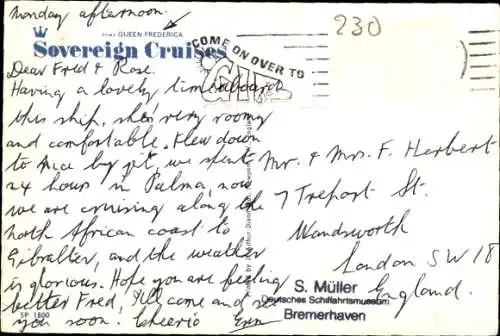 Monday afternoon.
QUEEN FREDERICA
Sovereign Cruises
230
COME ON OVER TO
GIB
Dear Fred & Rose.
Having a lovely time aboard
this ship, she's very roomy
and comfortable. Flew down
to Nice by jet, we spent
24 hours in Palma, now
we are cruising along the
North African coast to
Gibralter, and the weather
is glorious. Hope you are feeling
better Fred, I'll come and see
you soon. Cheerio
SP 1800
Mr. & Mrs F. Herbert
7 Treport St.
Wandsworth
London SW 18
England.
S. Müller
Deutsches Schiffahrtsmuseum
Bremerhaven